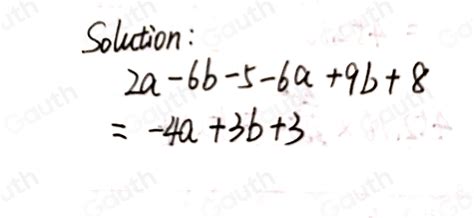 Solution:
2a-6b-5-6a+9b+8
= -4a+3b+3